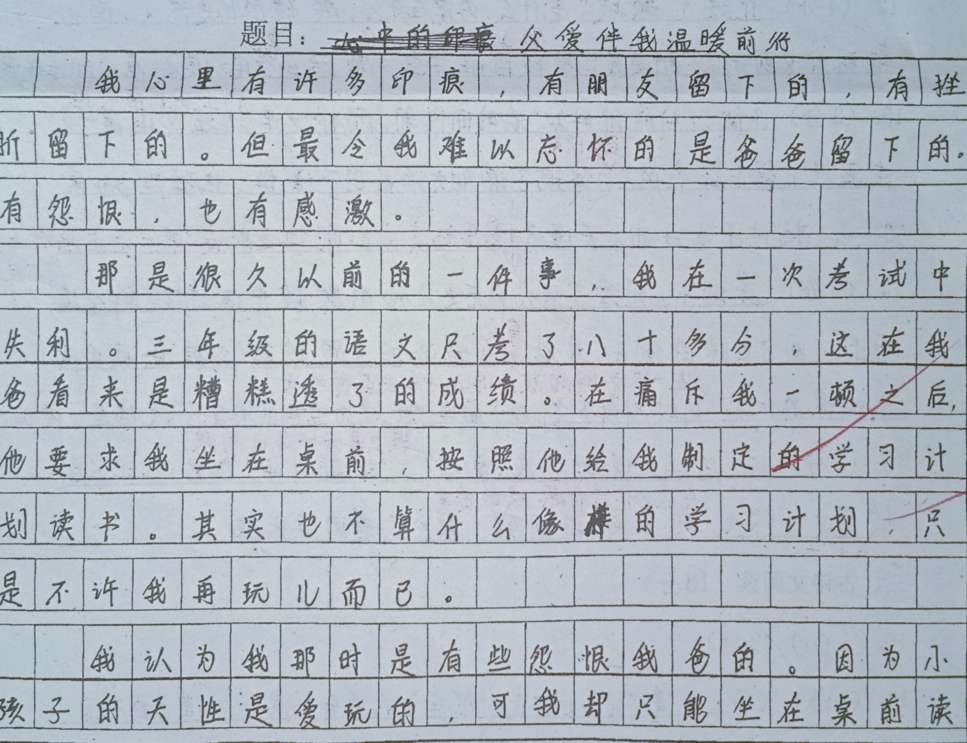 题目：父爱伴我温暖前行
我心里有许多印痕，有朋友留下的，有挫
折留下的。但最令我难以忘怀的是爸爸留下的。
有怨恨，也有感激。
那是很久以前的一件事，我在一次考试中
失利。三年级的语文只考了八十多分，这在我
爸看来是糟糕透了的成绩。在痛斥我一顿之后，
他要求我坐在桌前，按照他给我制定的学习计
划读书。其实也不算什么像样的学习计划，只
是不许我再玩儿而已。
我认为我那时是有些怨恨我爸的。因为小
孩子的天性是爱玩的，可我却只能坐在桌前读